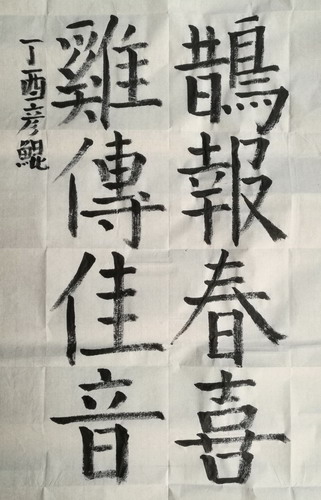 鵲報春喜
雞傳佳音
丁酉彦鲲